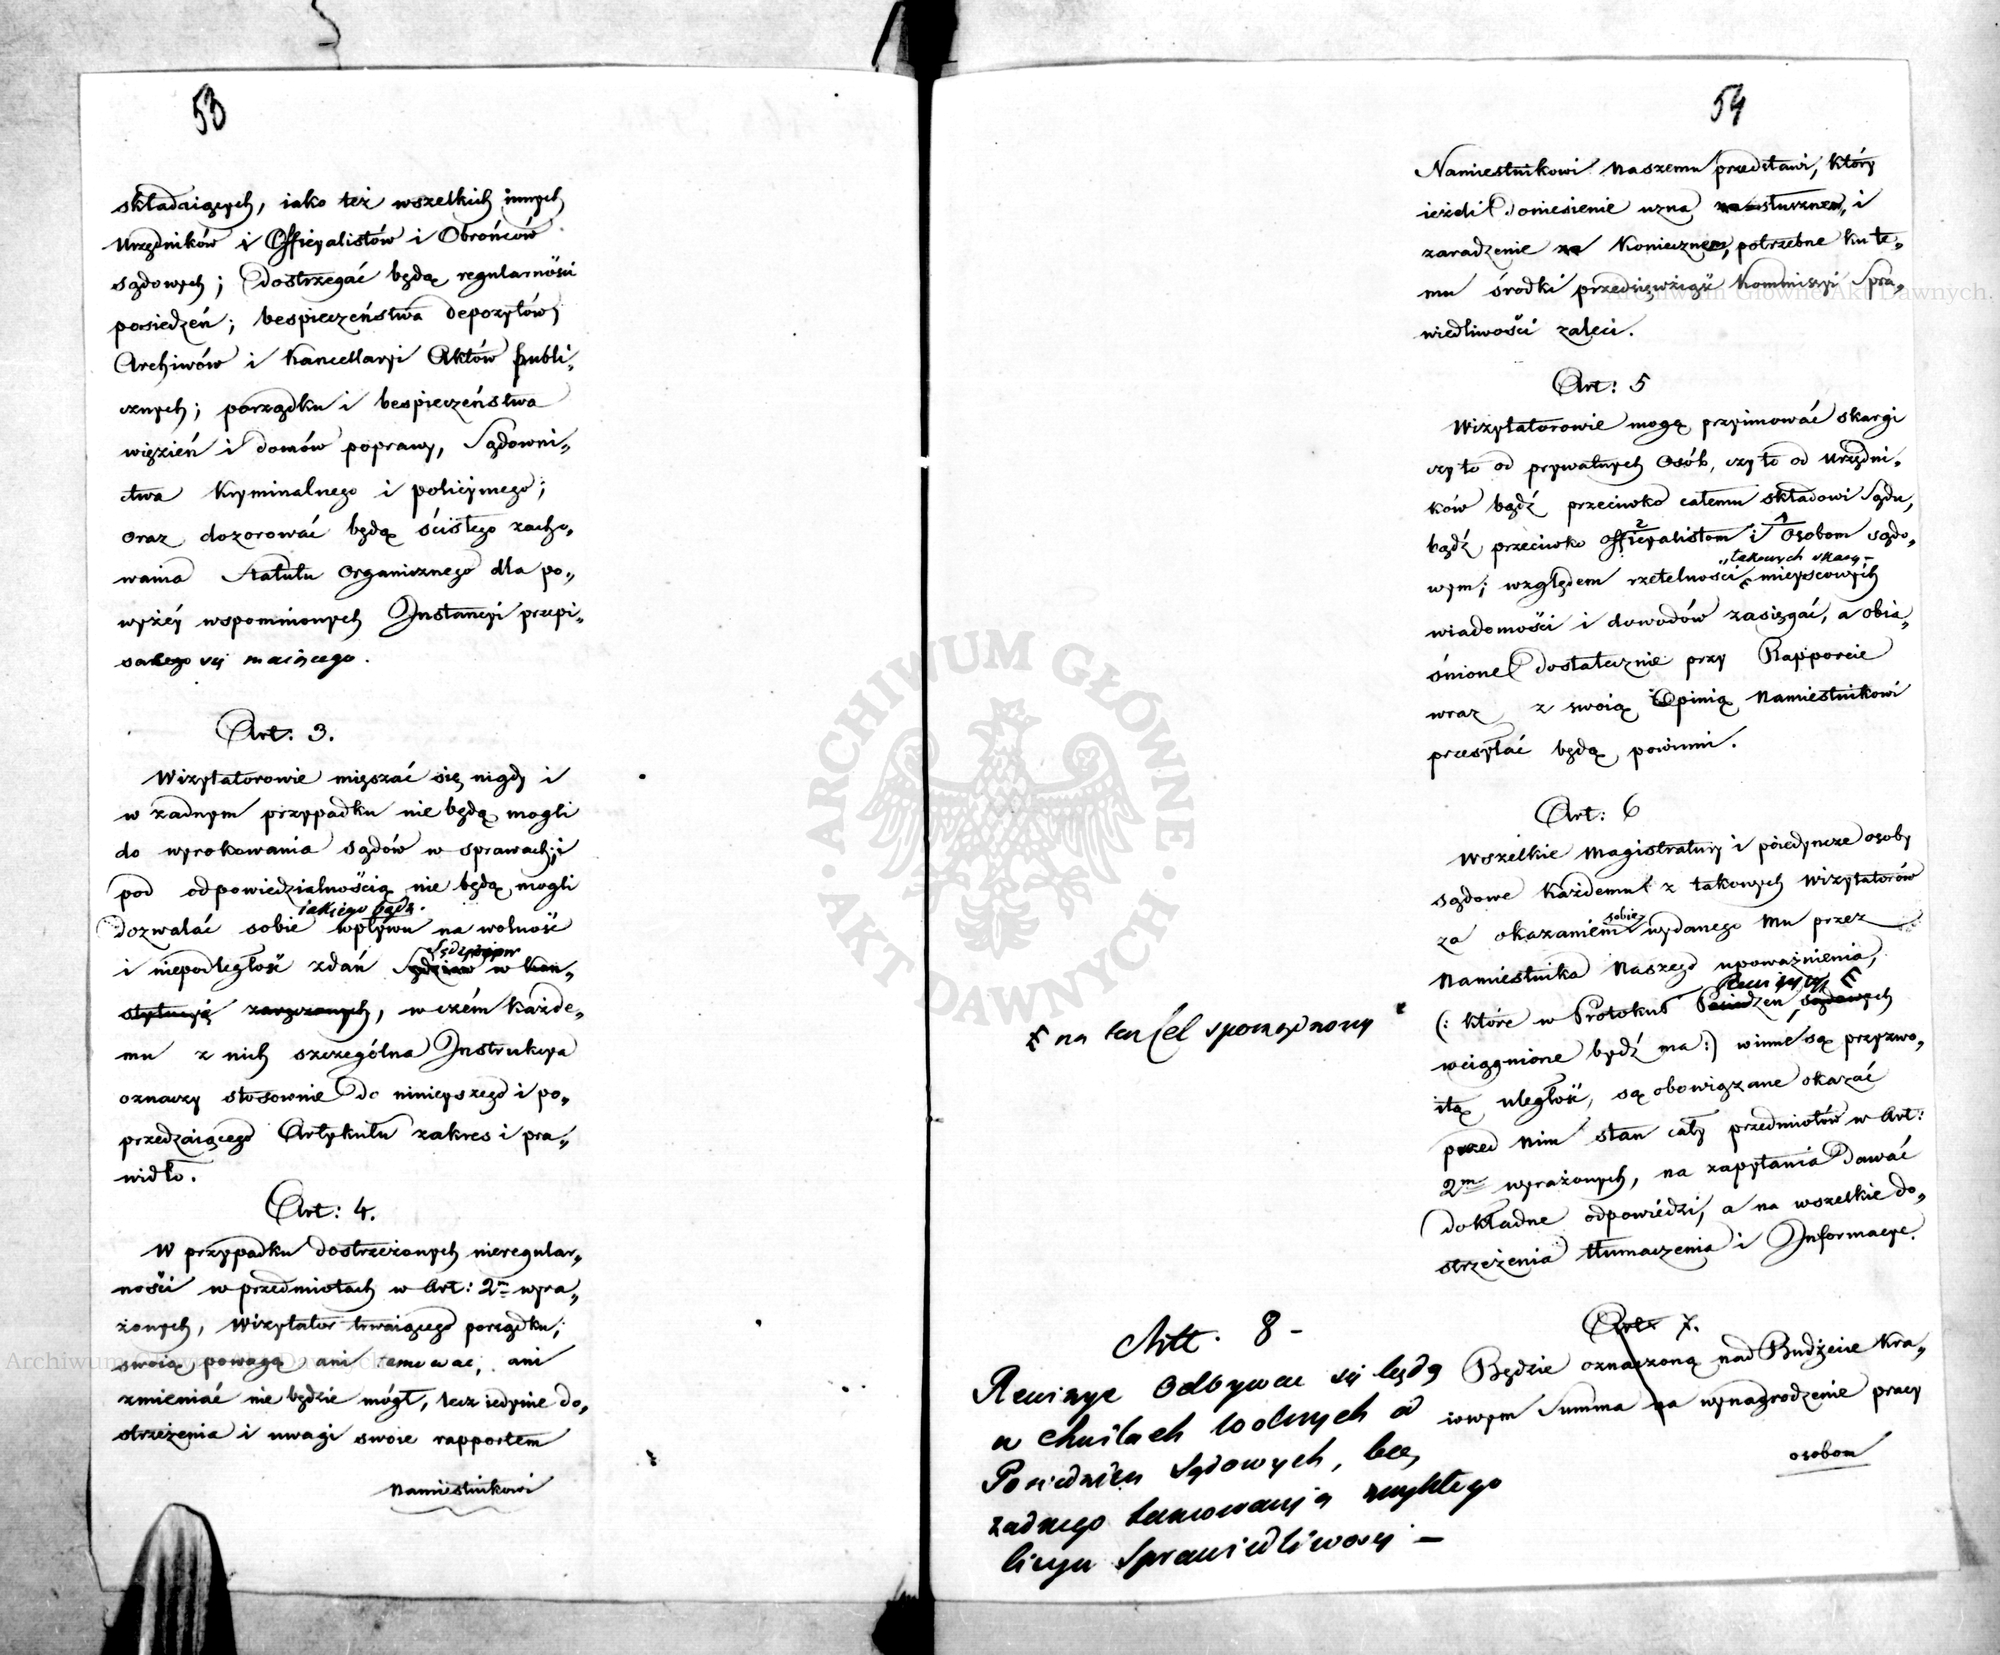 53
składaiących, iako też wszelkich innych
Urzędników i Officyalistów i Obrońców
sądowych; dostrzegać będą regularności
posiedzeń; bespieczeństwa depozytów,
Archiwów i Kancellaryi Aktów publi„
cznych; porządku i bespieczeństwa
więzień i domów poprawy, Sądowni„
ctwa Kryminalnego i policyinego;
oraz dozorować będą ścisłego zacho„
wania Statutu Organicznego dla po„
wyżéy wspomnionych Instancyi przepi„
sanego się maiącego.
Art: 3.
Wizytatorowie mięszać się nigdy i
w żadnym przypadku nie będą mogli
do wyrokowania sądów w sprawach; i
pod odpowiedzialnością nie będą mogli
iakiego bądź
dozwalać sobie wpływu na wolność
i niepodległość zdań Sędziów w kon„
stytucyi zaręczonych, w czém każde„
mu z nich szczególna Instrukcya
oznaczy stosownie do ninieyszego i po„
przedzaiącego Artykułu zakres i pra„
widło.
Art: 4.
W przypadku dostrzeżonych nieregular„
ności w przedmiotach w Art: 2m wyra„
żonych, Wizytator trwaiącego porządku,
swoią powagą ani tamować, ani
zmieniać nie będzie mógł, lecz iedynie do„
strzeżenia i uwagi swoie rapportem
Namiestnikowi
54
Namiestnikowi Naszemu przedstawi, który
ieżeli doniesienie uzna za słuszne, i
zaradzenie za konieczne, potrzebne ku te„
mu środki przedsięwziąść Kommissyi Spra„
wiedliwości zaleci.
Art: 5
Wizytatorowie mogą przyimować skargi
czy to od prywatnych Osób, czy to od Urzędni„
ków bądź przeciwko całemu składowi Sądu,
2 1
bądź przeciwko Officyalistom i Osobom sądo„
„takowych skarg
wym; względem rzetelności mieyscowych
wiadomości i dowodów zasięgać, a obia„
śnione dostatecznie przy Rapporcie
wraz z swoią Opinią Namiestnikowi
przesyłać będą powinni.
Art: 6
Wszelkie Magistratury i poiedyncze osoby
sądowe każdemu z takowych Wizytatorów
sobie
za okazaniem wydanego mu przez
Namiestnika Naszego upoważnienia,
(: które w Protokuł Posiedzeń sądowych
wciągnione bydź ma:) winne są przyzwo„
itą uległość, są obowiązane okazać
przed nim stan cały przedmiotów w Art:
2m wyrażonych, na zapytania dawać
dokładne odpowiedzi, a na wszelkie do„
strzeżenia tłumaczenia i Informacye.
na ten cel sporządzony
Art: 7.
Będzie oznaczoną nad Budżecie Kra„
iowym Summa na wynagrodzenie pracy
osobom
Artt. 8 -
Rewizye odbywać się będą
w chwilach wolnych od
Posiedzeń Sądowych, bez
żadnego tamowania zwykłego
biegu Sprawiedliwości -
ARCHIWUM GŁÓWNE · AKT DAWNYCH ·
Archiwum Główne Akt Dawnych.
Archiwum Główne Akt Dawnych.